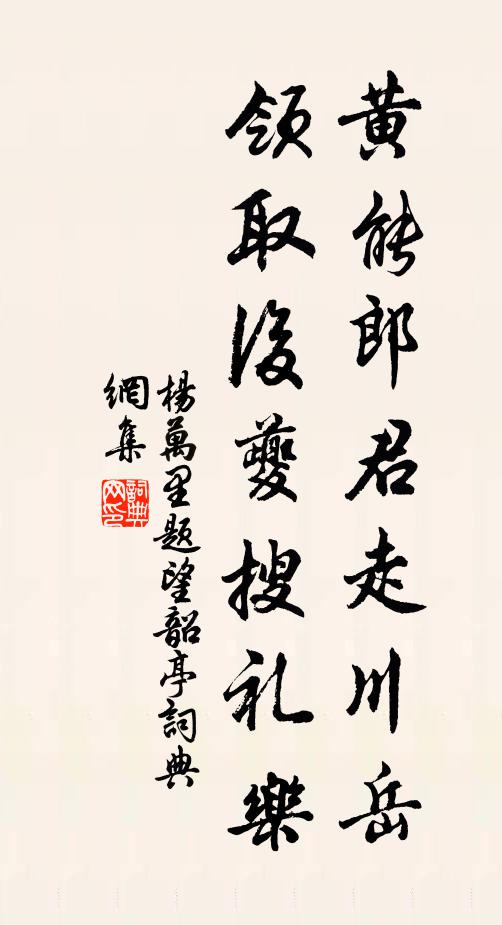 黄能郎君走川岳
領取後夔搜礼樂
楊萬里題望韶亭詞典
網集
詞典
网印